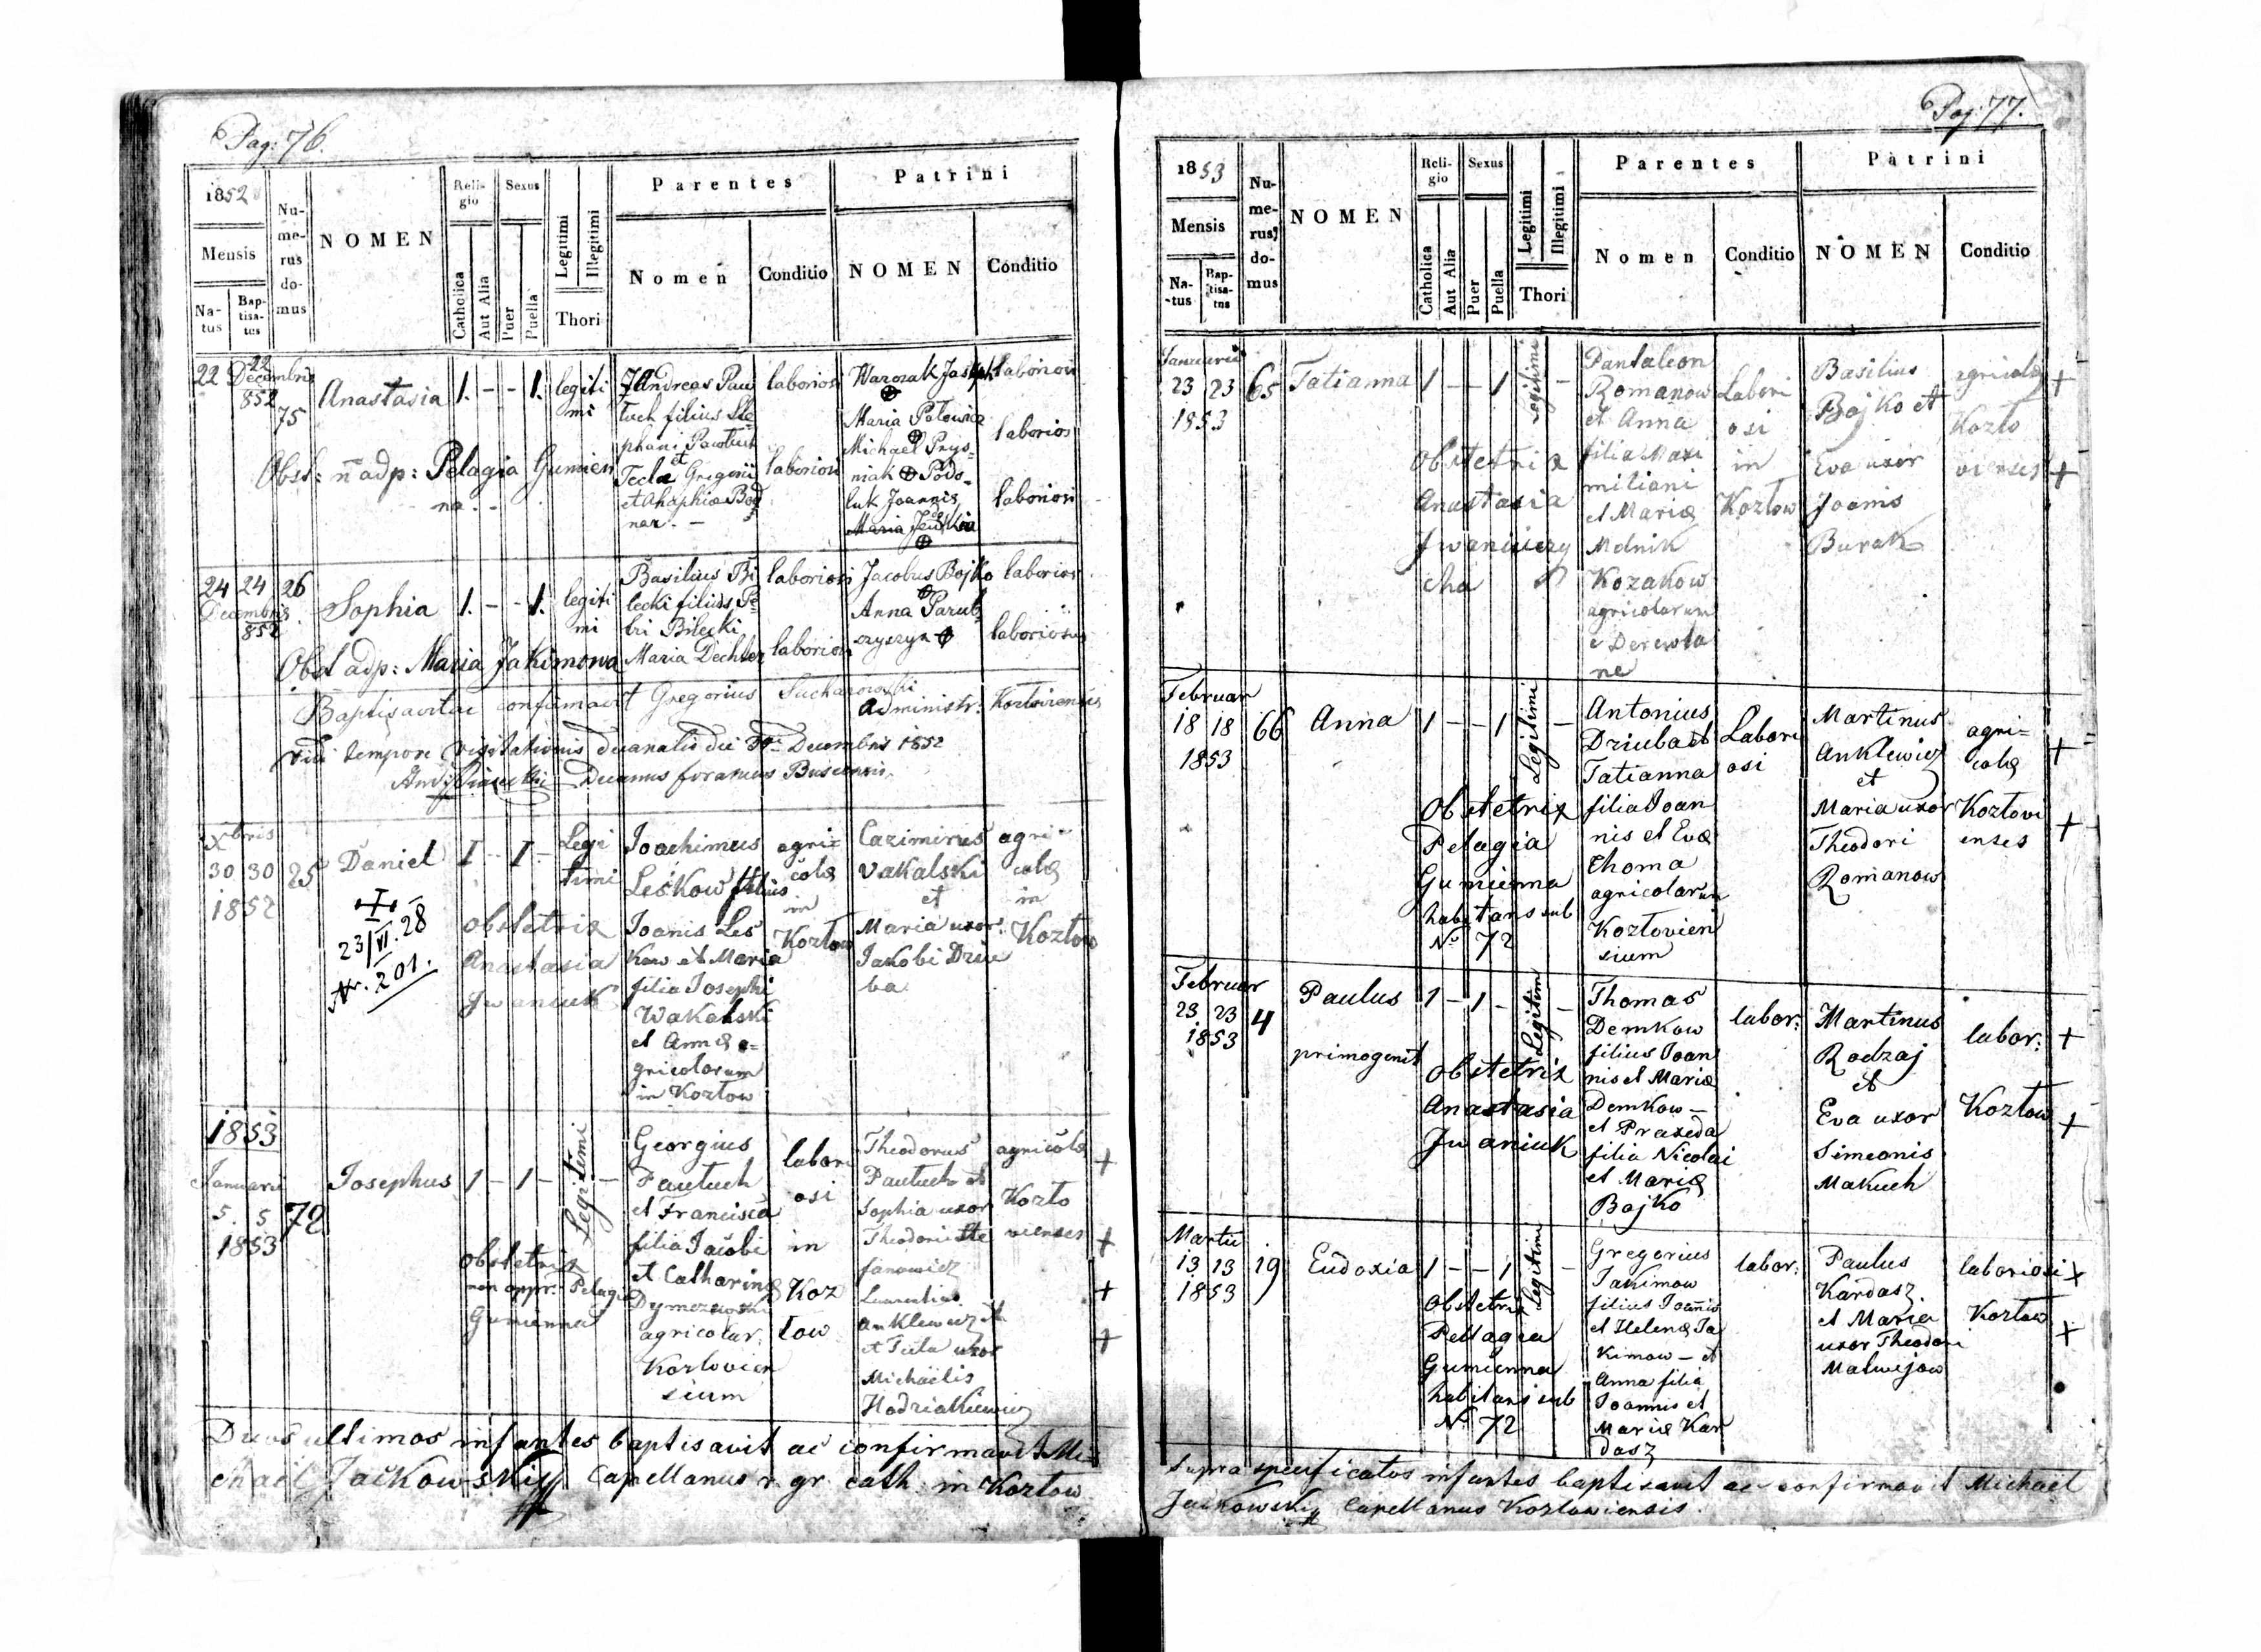 Pag: 76.
1852
Mensis
Na-
tus
Bap-
tisa-
tus
Nu-
me-
rus
do-
mus
NOMEN
Reli-
gio
Catholica
Aut Alia
Sexus
Puer
Puella
Legitimi
Illegitimi
Thori
Parentes
Nomen
Conditio
Patrini
NOMEN
Conditio
22
22
Decembris
852
75
Anastasia
1. - - 1.
legiti
mi
Andreas Paw
tuch filius Ste
phani Pawtuch
et
Tecla Gregorii
et Ahaphia Bod
nar. -
laboriosi
laboriosi
Warozak Jaseph
Maria Potowicz
Michael Prys-
niak Podo-
luk Joannis
laboriosi
laborios
laboriosi
Obst: n adp: Pelagia Gumien
na.
24 24 26
Decembris
852
Sophia
1. - - 1.
legiti
mi
Basilius Bi
lecki filius Pe
tri Bilecki
Maria Dechter
laboriosi
laboriosi
Jacobus Bojko
Anna Parub
szyszyn
laborios
laboriosus
Obst adp: Maria Jakimowa
Baptisavit ac confirmavit Gregorius Sucharowski
Administr. Kozloviensis
vidi tempore visitationis decanalis die 31 Decembris 1852
Decanus foraneus Buscensis
Xbris
30 30 25
1852
Daniel
I - I -
Legi
timi
Joachimus
Leśkow filius
Joanis Les
kow et Maria
filia Josephi
Wakalski
et Annæ a=
gricolarum
in Kozłow
agri=
colæ
in
Kozłow
Cazimirus
Vakalski
et
Maria uxor
Jakobi Dziu
ba
agri=
colæ
in
Kozłow
23/VI.28
Nr. 201.
Obstetrix
Anastasia
Jwaniuk
1853
Januarii
5. 5. 72
1853
Josephus
1 - 1 -
Legitimi
Georgius
Pautuch
et Francisca
filia Jacobi
et Catharinæ
agricolar.
Kozlovien
sium
labori
osi
in
Koz
łow
Theodorus
Pautuch et
Sophia uxor
Theodori Ste
fanowicz
Laurentius
Anklewicz et
et Tecla uxor
Michaelis
Hadziakiewicz
agricolæ
Kozło
vienses
Obstetrix
non appr. Pelagia
Gumienna
Duos ultimos infantes baptisavit ac confirmavit Mi=
chael Jaćkowskij Capellanus r. gr. cath. in Kozłow
Pag. 77.
1853
Mensis
Na-
tus
Bap-
tisa-
tus
Nu-
me-
rus
do-
mus
NOMEN
Reli-
gio
Catholica
Aut Alia
Sexus
Puer
Puella
Legitimi
Illegitimi
Thori
Parentes
Nomen
Conditio
Patrini
NOMEN
Conditio
Januarii
23 23 65
1853
Tatianna
1 - - 1
Legitimi
Pantaleon
Romanow
et Anna
filia Maxi
miliani
et Mariæ
Melnik
Kozakow
agricolarum
e Derewla
ne
Labori
osi
in
Kozłow
Basilius
Bojko et
Eva uxor
Joanis
Burak
agricolæ
Kozło
vienses
Obstetrix
Anastasia
Jwaniuczy
cha
Februar
18 18 66
1853
Anna
1 - - 1
Legitimi
Antonius
Dziuba et
Tatianna
filia Joan
nis et Evæ
Thoma
agricolarum
Kozłovien
sium
Labori
osi
Martinus
Anklewicz
et
Maria uxor
Theodori
Romanow
agri=
colæ
Kozłovi
enses
Obstetrix
Pelagia
Gumienna
habitans sub
No 72
Februar
23 23 4
1853
Paulus
primogenit
1 - 1 -
Legitimi
Thomas
Demkow
filius Joan
nis et Mariæ
Demkow -
et Praxeda
filia Nicolai
et Mariæ
Bojko
labor:
Martinus
Rodzaj
et
Eva uxor
Simeonis
Makuch
labor:
Kozłow
Obstetrix
Anastasia
Jwaniuk
Martii
13 13 19
1853
Eudoxia
1 - - 1
Legitimi
Gregorius
Jakimow
filius Joanis
et Helenæ Ja
kimow - et
Anna filia
Joannis et
Mariæ Kar
dasz
labor:
Paulus
Kardasz
et Maria
uxor Theodori
Matwijow
laboriosi
Kozłow
Obstetrix
Pellagia
Gumienna
habitans sub
No 72
Supra specificatos infantes baptisavit ac confirmavit Michael
Jaćkowskij Capellanus Kozłowiensis.